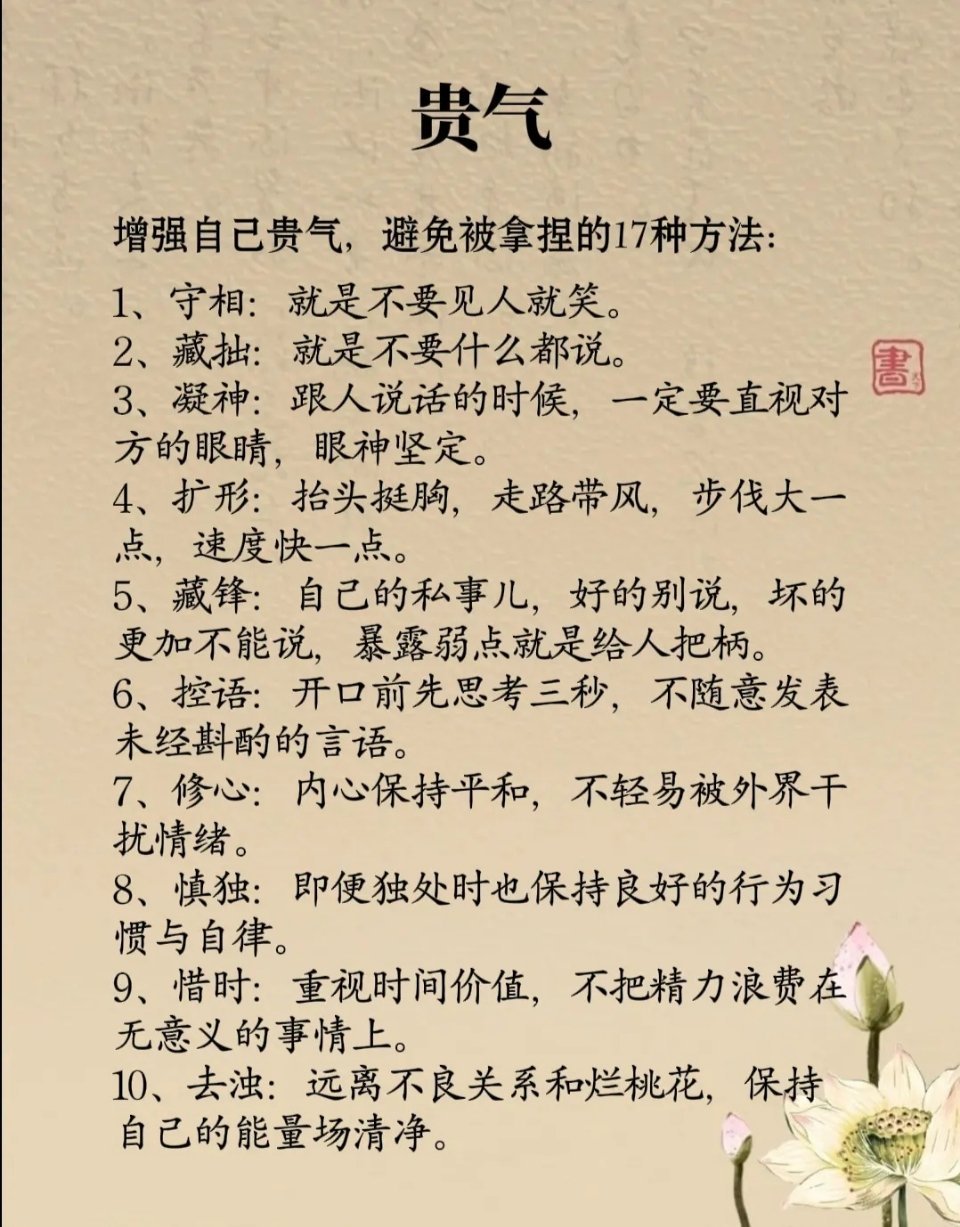 贵气
增强自己贵气，避免被拿捏的17种方法：
1、守相：就是不要见人就笑。
2、藏拙：就是不要什么都说。
3、凝神：跟人说话的时候，一定要直视对
方的眼睛，眼神坚定。
4、扩形：抬头挺胸，走路带风，步伐大一
点，速度快一点。
5、藏锋：自己的私事儿，好的别说，坏的
更加不能说，暴露弱点就是给人把柄。
6、控语：开口前先思考三秒，不随意发表
未经斟酌的言语。
7、修心：内心保持平和，不轻易被外界干
扰情绪。
8、慎独：即便独处时也保持良好的行为习
惯与自律。
9、惜时：重视时间价值，不把精力浪费在
无意义的事情上。
10、去浊：远离不良关系和烂桃花，保持
自己的能量场清净。
書